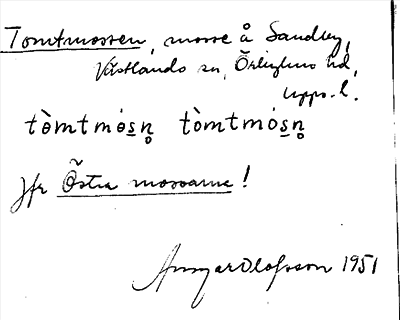 Tomtmossen, mosse å Sandby,
Västlands sn, Örbyhus hd,
Upps. l.
tòmtmósn̥ tòmtmósn̥
Jfr Östra mossarne!
Ansgar Olofsson 1951